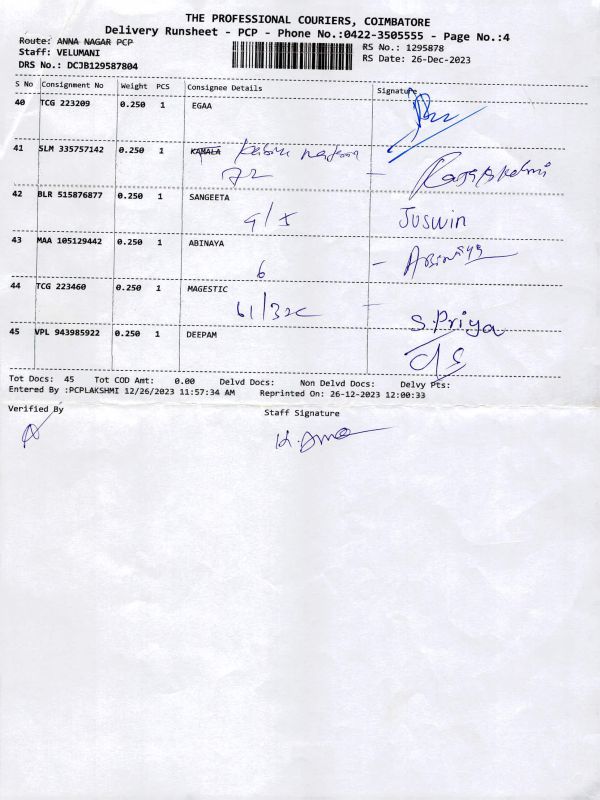 THE PROFESSIONAL COURIERS, COIMBATORE
Delivery Runsheet - PCP - Phone No.:0422-3505555 - Page No.:4
Route: ANNA NAGAR PCP
RS No.: 1295878
Staff: VELUMANI
RS Date: 26-Dec-2023
DRS No.: DCJB129587804
S No Consignment No Weight PCS Consignee Details Signature
40 TCG 223209 0.250 1 EGAA
41 SLM 335757142 0.250 1 KAMALA
72
42 BLR 515876877 0.250 1 SANGEETA
Juswin
43 MAA 105129442 0.250 1 ABINAYA
6 - Abinaya
44 TCG 223460 0.250 1 MAGESTIC
61/32c
S.Priya
45 VPL 943985922 0.250 1 DEEPAM
Tot Docs: 45 Tot COD Amt: 0.00 Delvd Docs: Non Delvd Docs: Delvy Pts:
Entered By :PCPLAKSHMI 12/26/2023 11:57:34 AM Reprinted On: 26-12-2023 12:00:33
Verified By Staff Signature